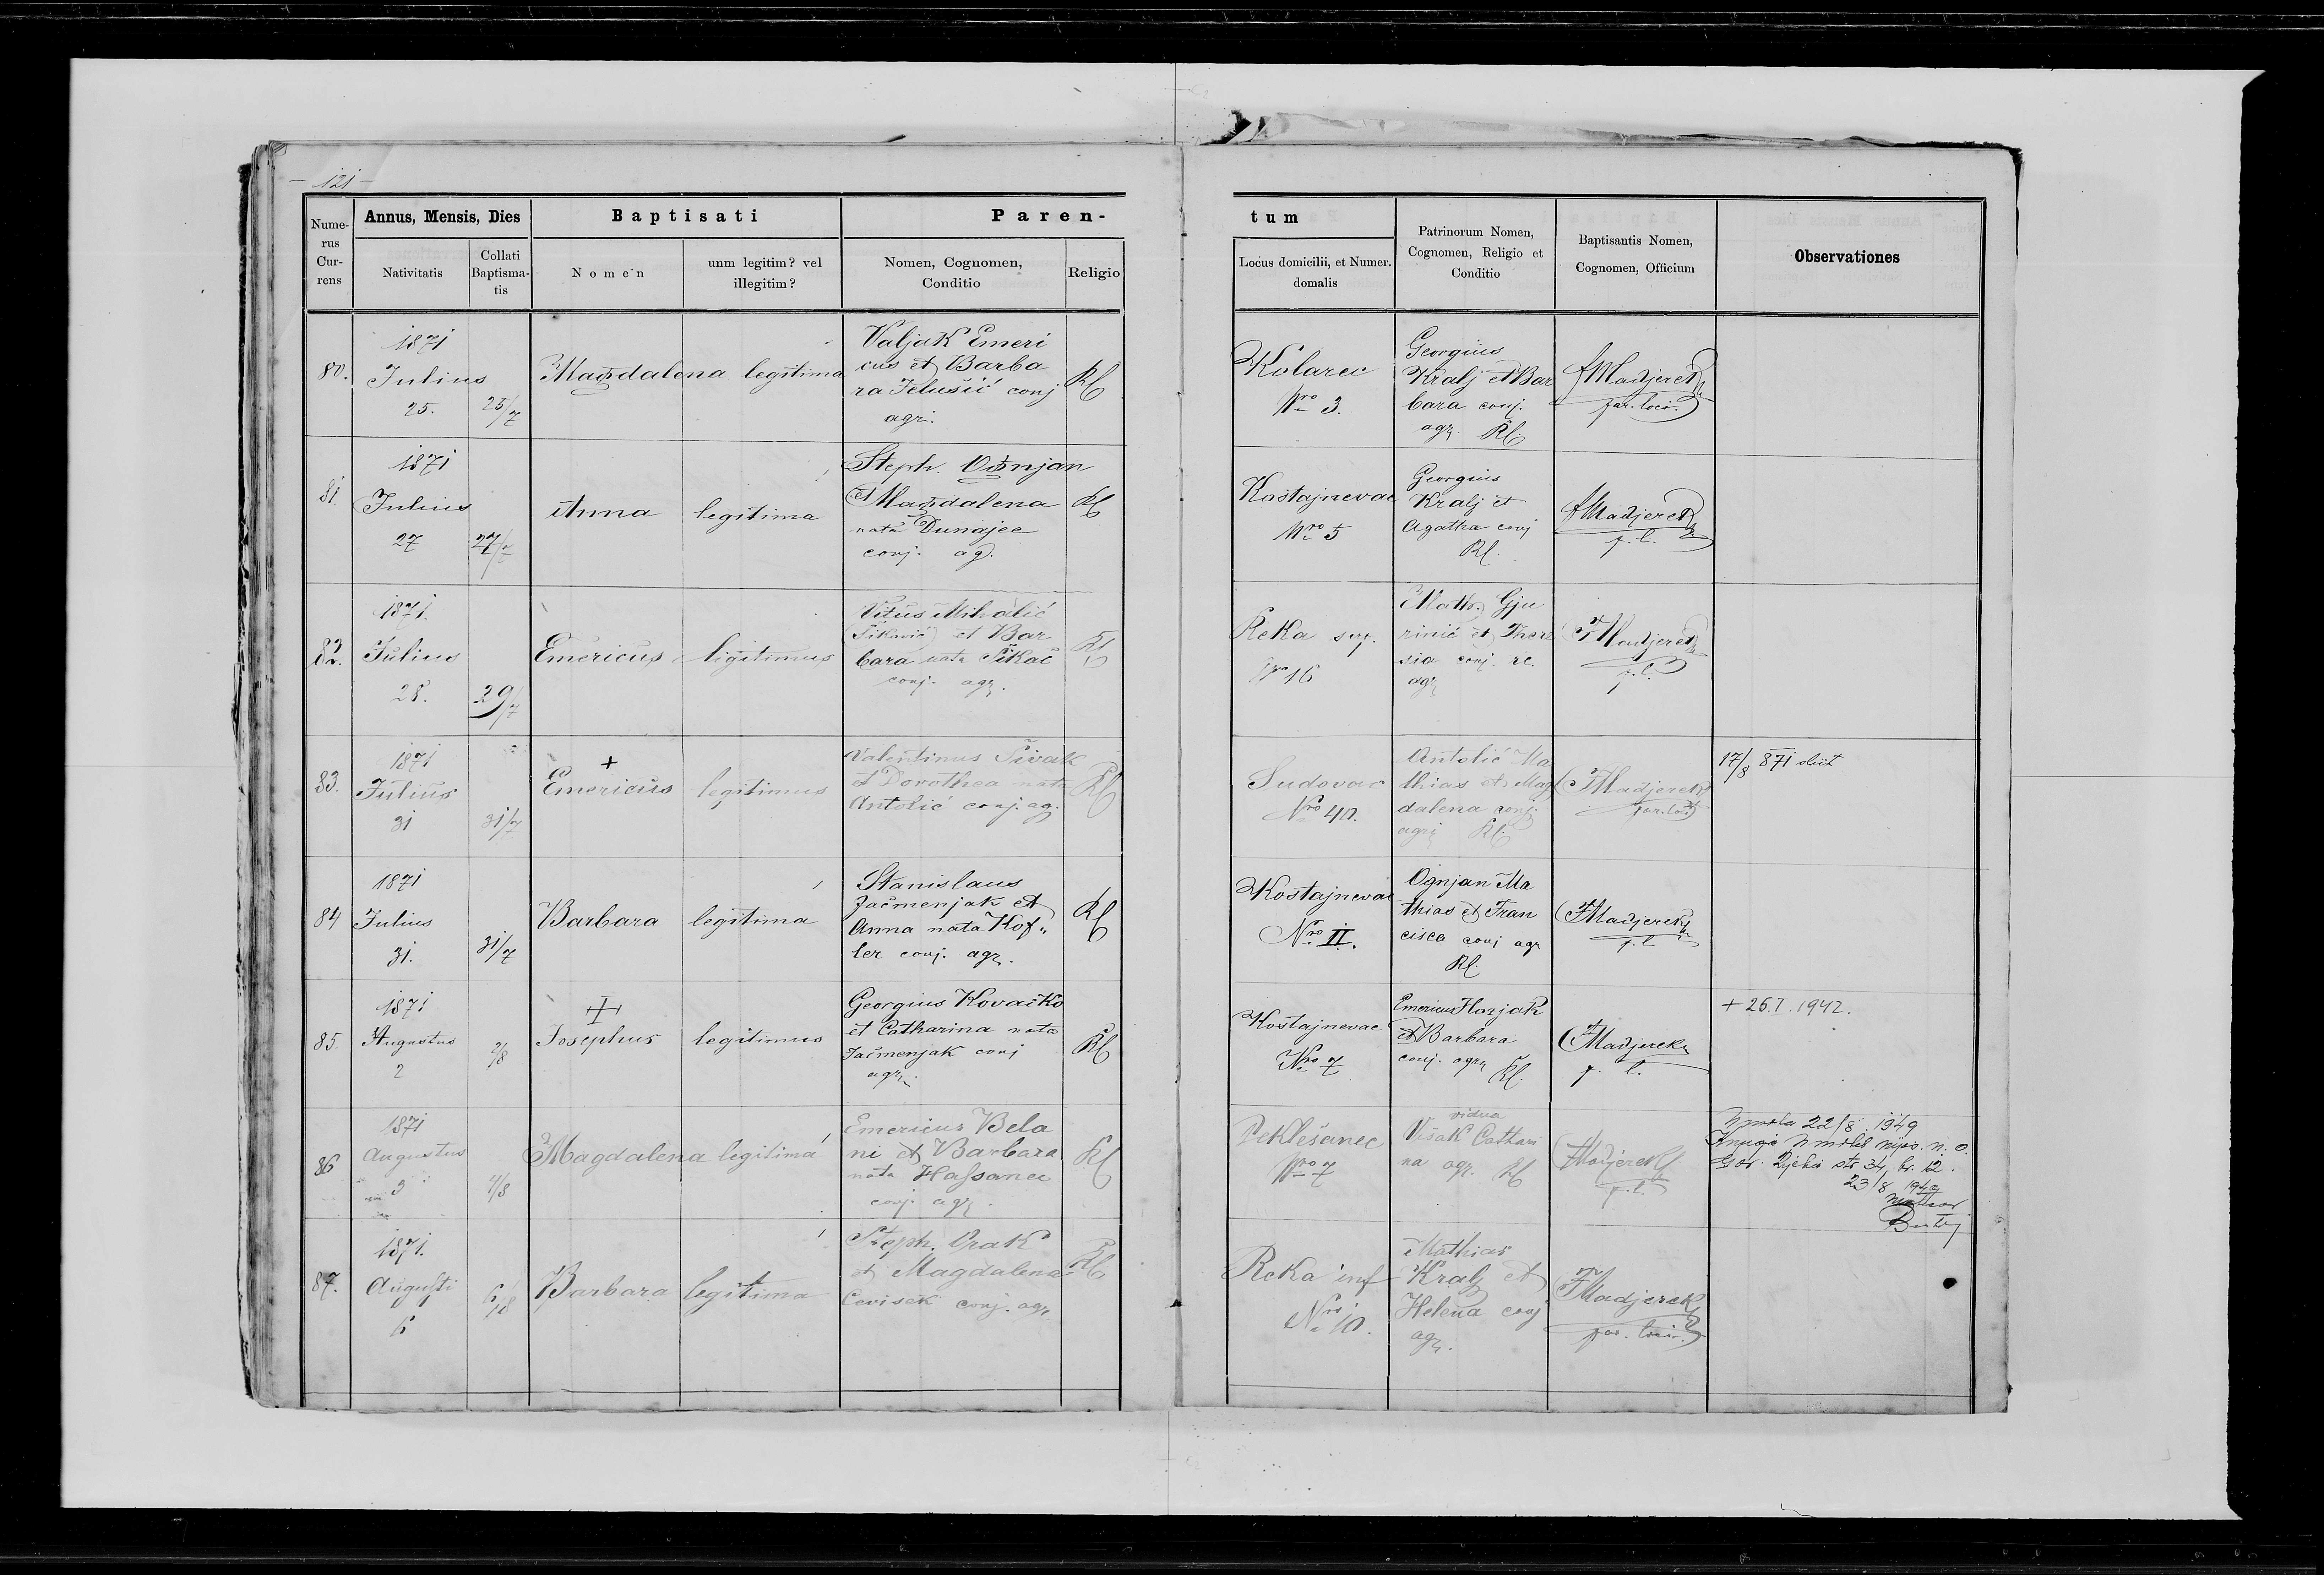 121
Annus, Mensis, Dies
Baptisati
Paren-
tum
Nume-
rus
Cur-
rens
Nativitatis
Collati
Baptisma-
tis
Nomen
unm legitim? vel
illegitim?
Nomen, Cognomen,
Conditio
Religio
Locus domicilii, et Numer.
domalis
Patrinorum Nomen,
Cognomen, Religio et
Conditio
Baptisantis Nomen,
Cognomen, Officium
Observationes
80.
1871
Julius
25.
25/7
Magdalena
legitima
Valjak Emeri
cus et Barba
ra Jelušić conj
agr.
RC
Kolarec
Nro 3.
Georgius
Kralj et Bar
bara conj.
agr. RC.
FMadjerek
par. loci.
81
1871
Julius
27
27/7
Anna
legitima
Steph. Ognjan
et Magdalena
nata Dunajec
conj. ag.
RC
Kostajnevac
Nro 5
Georgius
Kralj et
Agatha conj
RC.
FMadjerek
p. l.
82.
1871.
Julius
28.
29/7
Emericus
legitimus
Vitus Mihalić
et Bar
bara nata Šikač
conj. agr.
RC
Reka sup.
Nro 16
Math. Gju
rinić et There
sia conj. rc.
agr
FMadjerek
p. l.
83.
1871
Julius
31
31/7
+
Emericus
legitimus
Valentinus Šivak
et Dorothea nata
Antolić conj. ag.
RC
Sudovac
Nro 40.
Antolić Ma
thias et Mag
dalena conj.
agr RC.
FMadjerek
par. loc.
17/8 871 obiit
84
1871
Julius
31.
31/7
Barbara
legitima
Stanislaus
Jačmenjak et
Anna nata Kof„
ler conj. agr.
RC
Kostajnevac
Nro II.
Ognjan Ma
thias et Fran
cisca conj agr
RC.
FMadjerek
p. l.
85.
1871
Augustus
2
2/8
Josephus
legitimus
Georgius Kovačko
et Catharina nata
Jačmenjak conj
agr.
RC
Kostajnevac
Nro 7
Emericus Horjak
et Barbara
conj. agr RC.
FMadjerek
p. l.
+ 26.I.1942.
86
1871
Augustus
3
4/8
Magdalena
legitima
Emericus Bela
ni et Barbara
nata Haſsanec
conj. agr.
RC
Peklešanec
Nro 7
vidua
Višak Cathari
na agr. RC
FMadjerek
p. l.
Umrla 22/8 1949
Knjiga
Gor. Rijeka str 34, br. 12.
23/8 1949
87.
1871.
Auguſti
6
6/8
Barbara
legitima
Steph. Crak
et Magdalena
Cevisek conj. agr.
RC
Reka inf
Nro 10.
Mathias
Kralj et
Helena conj
agr.
FMadjerek
par. loci.